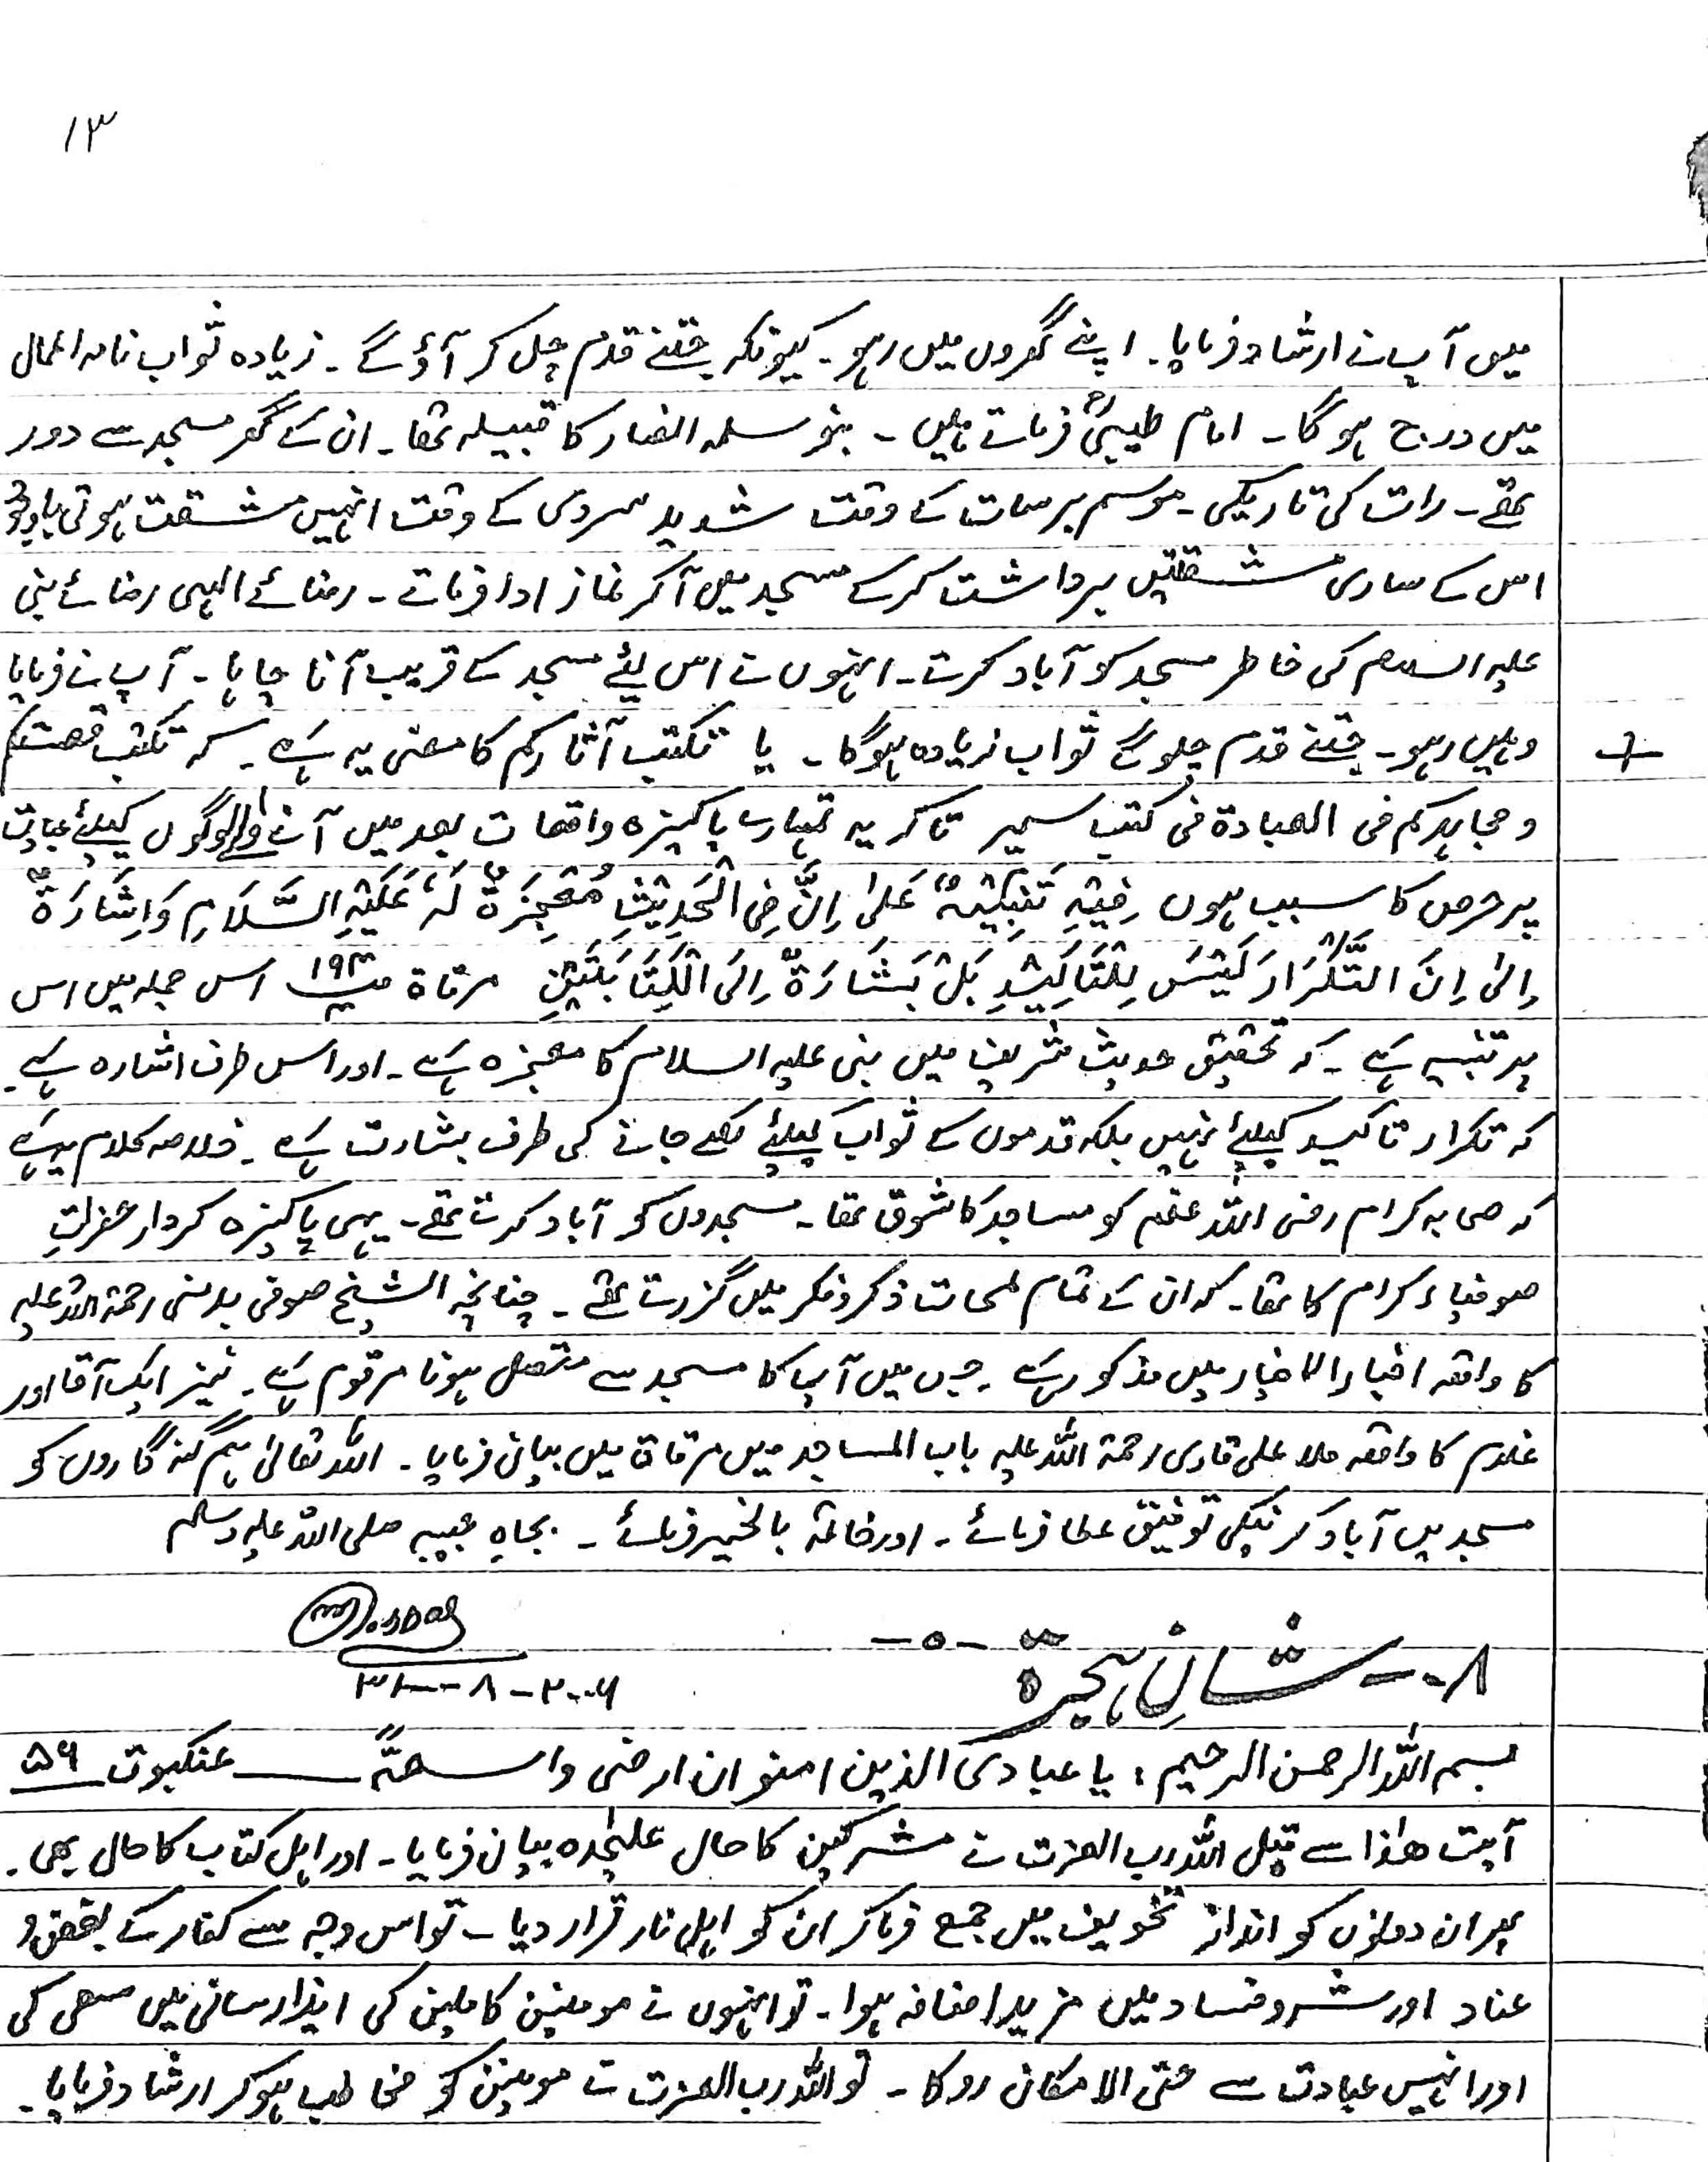 ۱۳
میں آپ نے ارشاد فرمایا۔ اپنے گھروں میں رہو۔ کیونکہ جتنے قدم چل کر آؤ گے۔ زیادہ ثواب نامہ اعمال
میں درج ہوگا۔ امام طیبیؒ فرماتے ہیں۔ بنو سلمہ انصار کا قبیلہ تھا۔ ان کے گھر مسجد سے دور
تھے۔ رات کی تاریکی۔ موسم برسات کے وقت شدید سردی کے وقت انہیں مشقت ہوتی باوجود
اس کے ساری مشقتیں برداشت کرکے مسجد میں آکر نماز ادا فرماتے۔ رضائے الہی رضائے نبی
علیہ السلام کی خاطر مسجد کو آباد کرتے۔ انہوں نے اس لیئے مسجد کے قریب آنا چاہا۔ آپ نے فرمایا
وہیں رہو۔ جتنے قدم چلو گے ثواب زیادہ ہوگا۔ یا تکتب آثارکم کا معنی یہ ہے۔ کہ تکتب قصتکم
و مجاہدکم فی العبادۃ فی کتب سیر تاکہ یہ تمہارے پاکیزہ واقعات بعد میں آنے والے لوگوں کیلئے عبادت
پر حرص کا سبب ہوں فِیْہِ تَنْبِیْہٌ عَلیٰ اِنَّ فِی الْحَدِیْثِ مُعْجِزَۃٌ لَہٗ عَلَیْہِ السَّلَامِ وَاِشَارَۃٌ
اِلیٰ اِنَ التَّکْرَارَ لَیْسَ لِلْتَاکِیْدِ بَلْ بَشَارَۃٌ اِلَی الْکِتَابَتَیْنِ مرقاۃ ص ۱۹۳ اس جملہ میں اس
پر تنبیہ ہے۔ کہ تحقیق حدیث شریف میں نبی علیہ السلام کا معجزہ ہے۔ اور اس طرف اشارہ ہے۔
کہ تکرار تاکید کیلئے نہیں بلکہ قدموں کے ثواب کیلئے لکھے جانے کی طرف بشارت ہے۔ خلاصہ کلام یہ ہے
کہ صحابہ کرام رضی اللہ عنھم کو مساجد کا شوق تھا۔ مسجدوں کو آباد کرتے تھے۔ یہی پاکیزہ کردار حضراتِ
صوفیاء کرام کا تھا۔ کہ ان کے تمام لمحات ذکر و فکر میں گزرتے تھے۔ چنانچہ الشیخ صوفی بدھنی رحمۃ اللہ علیہ
کا واقعہ اخبار الاخیار میں مذکور ہے۔ جس میں آپ کا مسجد سے متصل ہونا مرقوم ہے۔ نیز ایک آقا اور
غلام کا واقعہ ملا علی قاری رحمۃ اللہ علیہ باب المساجد میں مرقاۃ میں بیان فرمایا۔ اللہ تعالیٰ ہم گنہ گاروں کو
مسجدیں آباد کرنیکی توفیق عطا فرمائے۔ اور خاتمہ بالخیر فرمائے۔ بجاہِ حبیبہ صلی اللہ علیہ وسلم
۸-- شانِ ہجرۃ -۵-
۳۱-۸-۲۰۰۶
بسم اللہ الرحمن الرحیم؛ یا عبادی الذین امنو ان ارضی واسعۃً ـــــ عنکبوت ۵۶
آیت ھٰذا سے قبل اللہ رب العزت نے مشرکین کا حال علیٰحدہ بیان فرمایا۔ اور اہل کتاب کا حال بھی۔
پھر ان دونوں کو انداز تخویف میں جمع فرماکر ان کو اہل نار قرار دیا۔ تو اس وجہ سے کفار کے بغض و
عناد اور شر و فساد میں مزید اضافہ ہوا۔ تو انہوں نے مومنین کاملین کی ایذارسانی میں سعی کی
اور انہیں عبادت سے حتی الامکان روکا۔ تو اللہ رب العزت نے مومنین کو مخاطب ہوکر ارشاد فرمایا۔